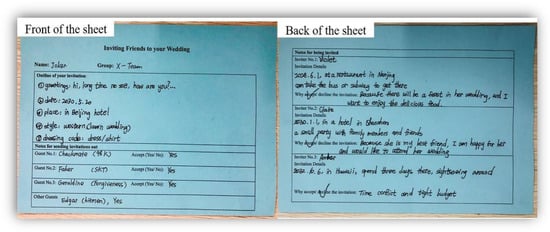 Front of the sheet
Inviting Friends to your Wedding
Name: Joker Group: X-Team
Outline of your invitation:
① greetings: hi, long time no see, how are you?...
② date: 2030.5.20
③ place: in Beijing hotel
④ style: western (lawn wedding)
⑤ dressing code: dress/shirt
Notes for sending invitations out
Guest No.1: Checkmate (YBK) Accept (Yes/No): Yes
Guest No.2: Faker (SKT) Accept (Yes/No): Yes
Guest No.3: Geraldine (Forgiveness) Accept (Yes/No): Yes
Other Guests Edgar (hitman), Yes
Back of the sheet
Notes for being invited
Inviter No.1: Violet
Invitation Details
2028.6.1, at a restaurant in Nanjing
can take the bus or subway to get there
Why accept/decline the invitation: Because there will be a feast in her wedding, and I
want to enjoy the delicious food.
Inviter No.2: Claire
Invitation Details
2030.1.1, in a hotel in Shenzhen
a small party with family members and friends
Why accept/decline the invitation: Because she is my best friend, I am happy for her
and would like to attend her wedding
Inviter No.3: Amber
Invitation Details
2032.6.6, in Hawaii, spend three days there, sightseeing around
Why accept/decline the invitation: Time conflict and tight budget